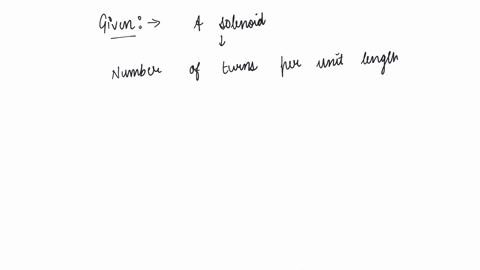 Given:→ A solenoid
↓
Number of turns per unit length